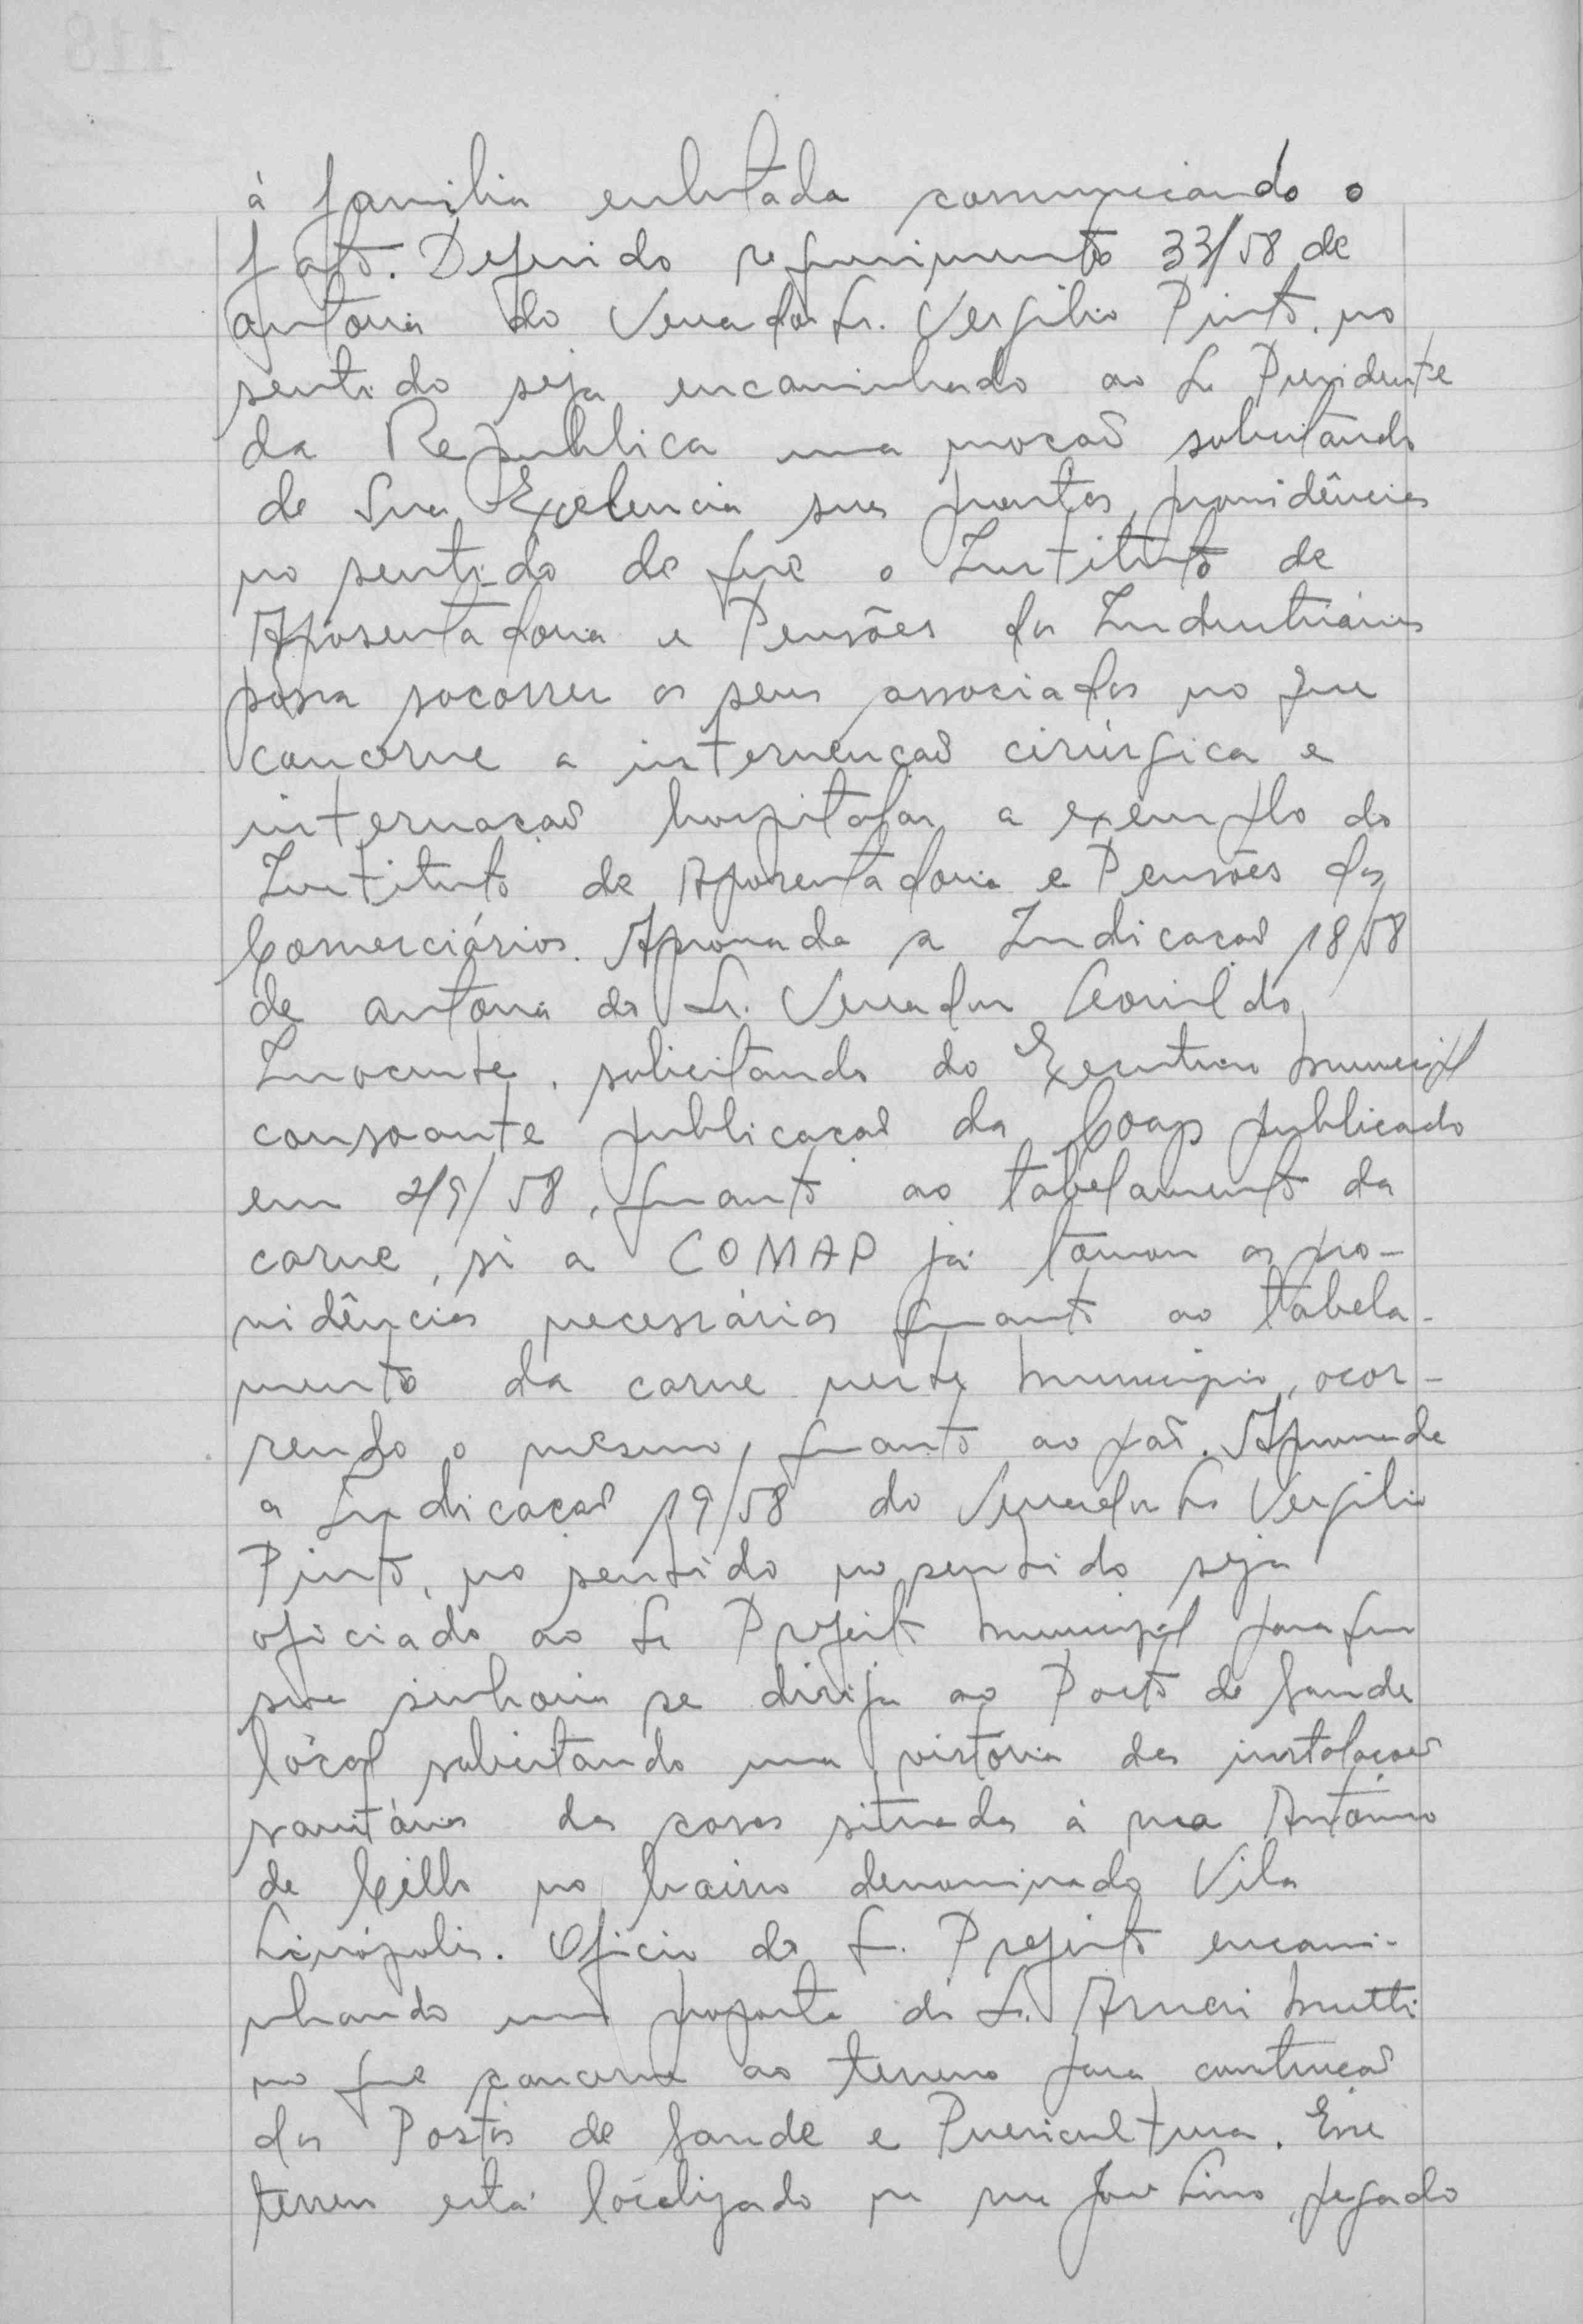 118
à familia enlutada comunicando o
fato. Deferido requerimento 33/58 de
autoria do Vereador Sr. Vergilio Pinto, no
sentido seja encaminhado ao Sr Presidente
da Republica uma moção solicitando
de Sua Excelencia suas prontas providências
no sentido de que o Instituto de
Aposentadoria e Pensões dos Industriários
possa socorrer os seus associados no que
concerne a intervenção cirúrgica e
internação hospitalar a exemplo do
Instituto de Aposentadoria e Pensões dos
Comerciários. Aprovada a Indicação 18/58
de autoria do Sr. Vereador
Inocente, solicitando do Executivo Municipal
consoante publicação da Coap publicado
em 2/9/58, quanto ao tabelamento da
carne, si a COMAP já tomou as pro-
vidências necessárias quanto ao tabela-
mento da carne neste Municipio, ocor-
rendo o mesmo, quanto ao pão. Aprovada
a Indicação 19/58 do Vereador Sr Vergilio
Pinto, no sentido no sentido seja
oficiado ao Sr Prefeito Municipal para que
sua senhoria se dirija ao Posto de Saude
local solicitando uma vistoria das instalações
sanitárias das casas situadas à rua Antonio
de Cillo no bairro denominado Vila
Linópolis. Oficio do Sr. Prefeito encami-
nhando uma proposta do Sr. Mutti
no que concerne ao terreno para construção
dos Postos de Saude e Puericultura. Esse
terreno está localizado na rua José Lino, pegado